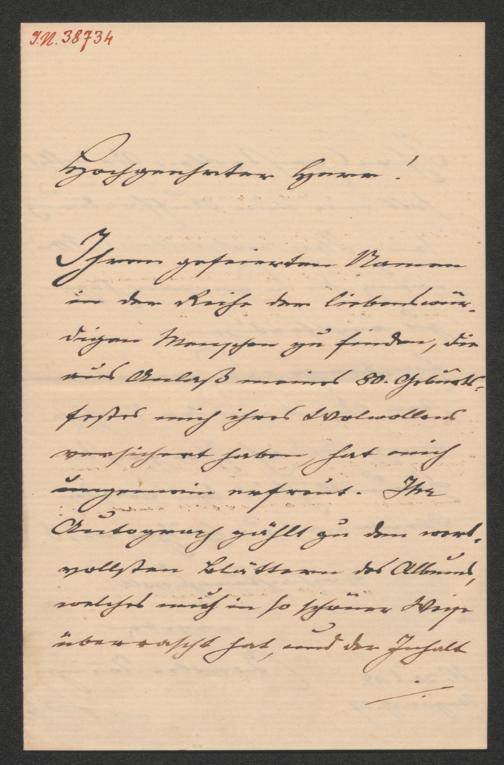 I.N. 38734
Hochgeehrter Herr!
Ihren gefeierten Namen
in der Reihe der liebenswür-
digen Menschen zu finden, die
aus Anlaß meines 80. Geburts-
festes mich ihres Wolwollens
versichert haben, hat mich
ungemein erfreut. Ihr
Autograph zählt zu den wert-
vollsten Blättern des Albums,
welches mich in so schöner Weise
überrascht hat, und der Inhalt